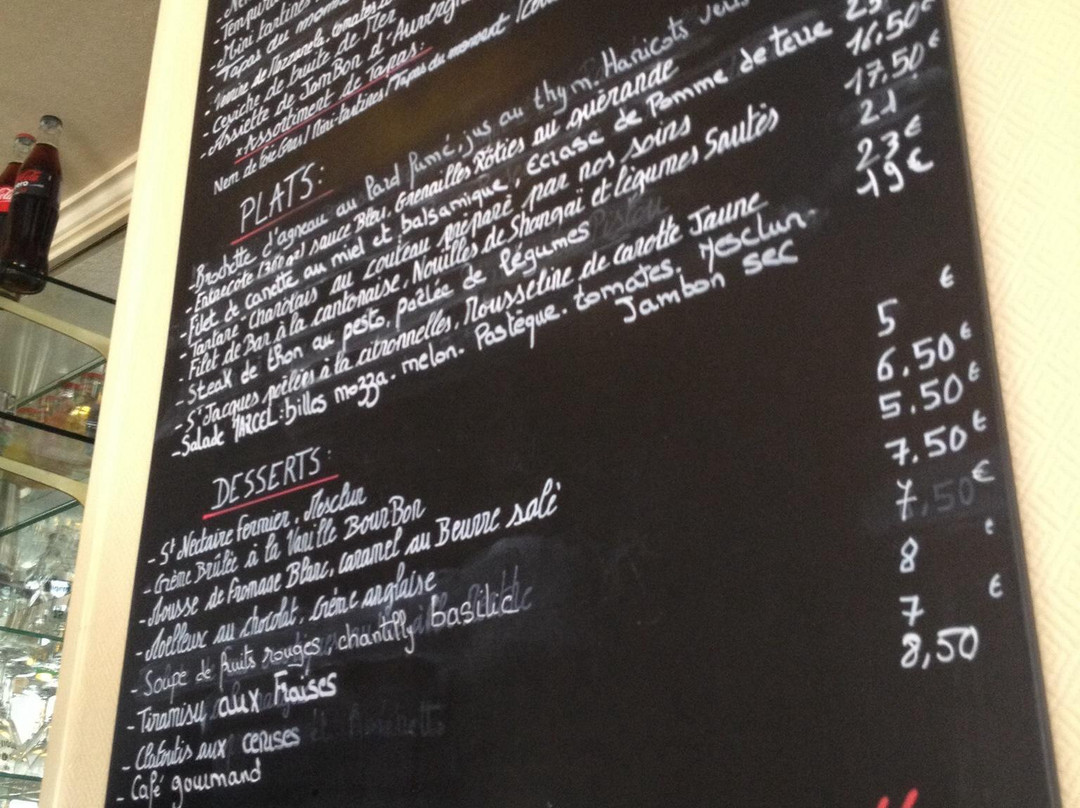 - Tempura
- Mini tartines
- Tapas du moment
- Verrine de Mozzarela, tomates
- Ceviche de truite de Mer
- Assiette de Jambon d'Auvergne
x Assortiment de Tapas:
Nem de foie Gras / Mini-tartines / Tapas du moment
PLATS:
- Brochette d'agneau au Lard fumé, jus au thym, Haricots verts
- Entrecôte (350 gr) sauce Bleu, Grenailles Rôties au guérande 16.50€
- Filet de canette au miel et balsamique, Ecrasé de Pomme de terre 17.50€
- Tartare Charolais au couteau préparé par nos soins 21
- Filet de Bar à la cantonaise, Nouilles de Shangaï et légumes Sautés 23€
- Steak de thon au pesto, poêlée de légumes 19€
- St Jacques poêlées à la citronnelles, Mousseline de carotte Jaune
- Salade MARCEL: billes mozza. melon. Pastèque. tomates. Mesclun.
Jambon sec
DESSERTS:
- St Nectaire Fermier, Mesclun 5 €
- Crème Brûlée à la Vanille BourBon 6.50€
- Mousse de fromage Blanc, caramel au Beurre salé 5.50€
- Moelleux au chocolat, crème anglaise 7.50€
- Soupe de fruits rouges, chantilly basilic 7,50€
- Tiramisu aux Fraises 8 €
- Clafoutis aux cerises 7 €
- Café gourmand 8,50